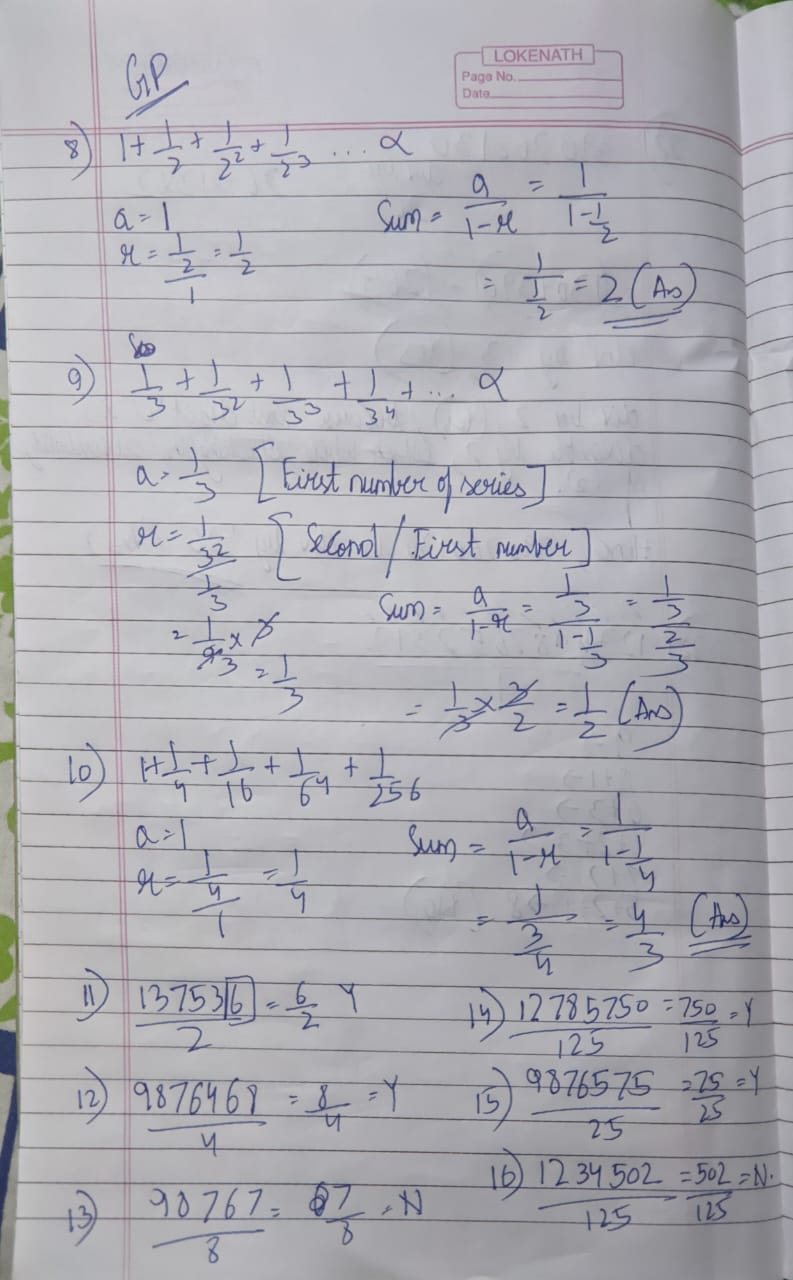 LOKENATH
Page No.
Date
GP
8) 1 + 1/2 + 1/2² + 1/2³ ... ∝
a = 1
r = (1/2)/1 = 1/2
Sum = a/(1-r) = 1/(1-1/2)
= 1/(1/2) = 2 (Ans)
9) 1/3 + 1/3² + 1/3³ + 1/3⁴ + ... ∝
a = 1/3 [First number of series]
r = (1/3²)/(1/3) [Second / First number]
= 1/9 × 3
3
= 1/3
Sum = a/(1-r) = (1/3)/(1-1/3) = (1/3)/(2/3)
= 1/3 × 3/2 = 1/2 (Ans)
10) 1 + 1/4 + 1/16 + 1/64 + 1/256
a = 1
r = (1/4)/1 = 1/4
Sum = a/(1-r) = 1/(1-1/4)
= 1/(3/4) = 4/3 (Ans)
11) 1375366/2 = 6/2 Y
12) 9876468/4 = 8/4 = Y
13) 98767/8 = 67/8 = N
14) 12785750/125 = 750/125 = Y
15) 9876575/25 = 75/25 = Y
16) 1234502/125 = 502/125 = N.